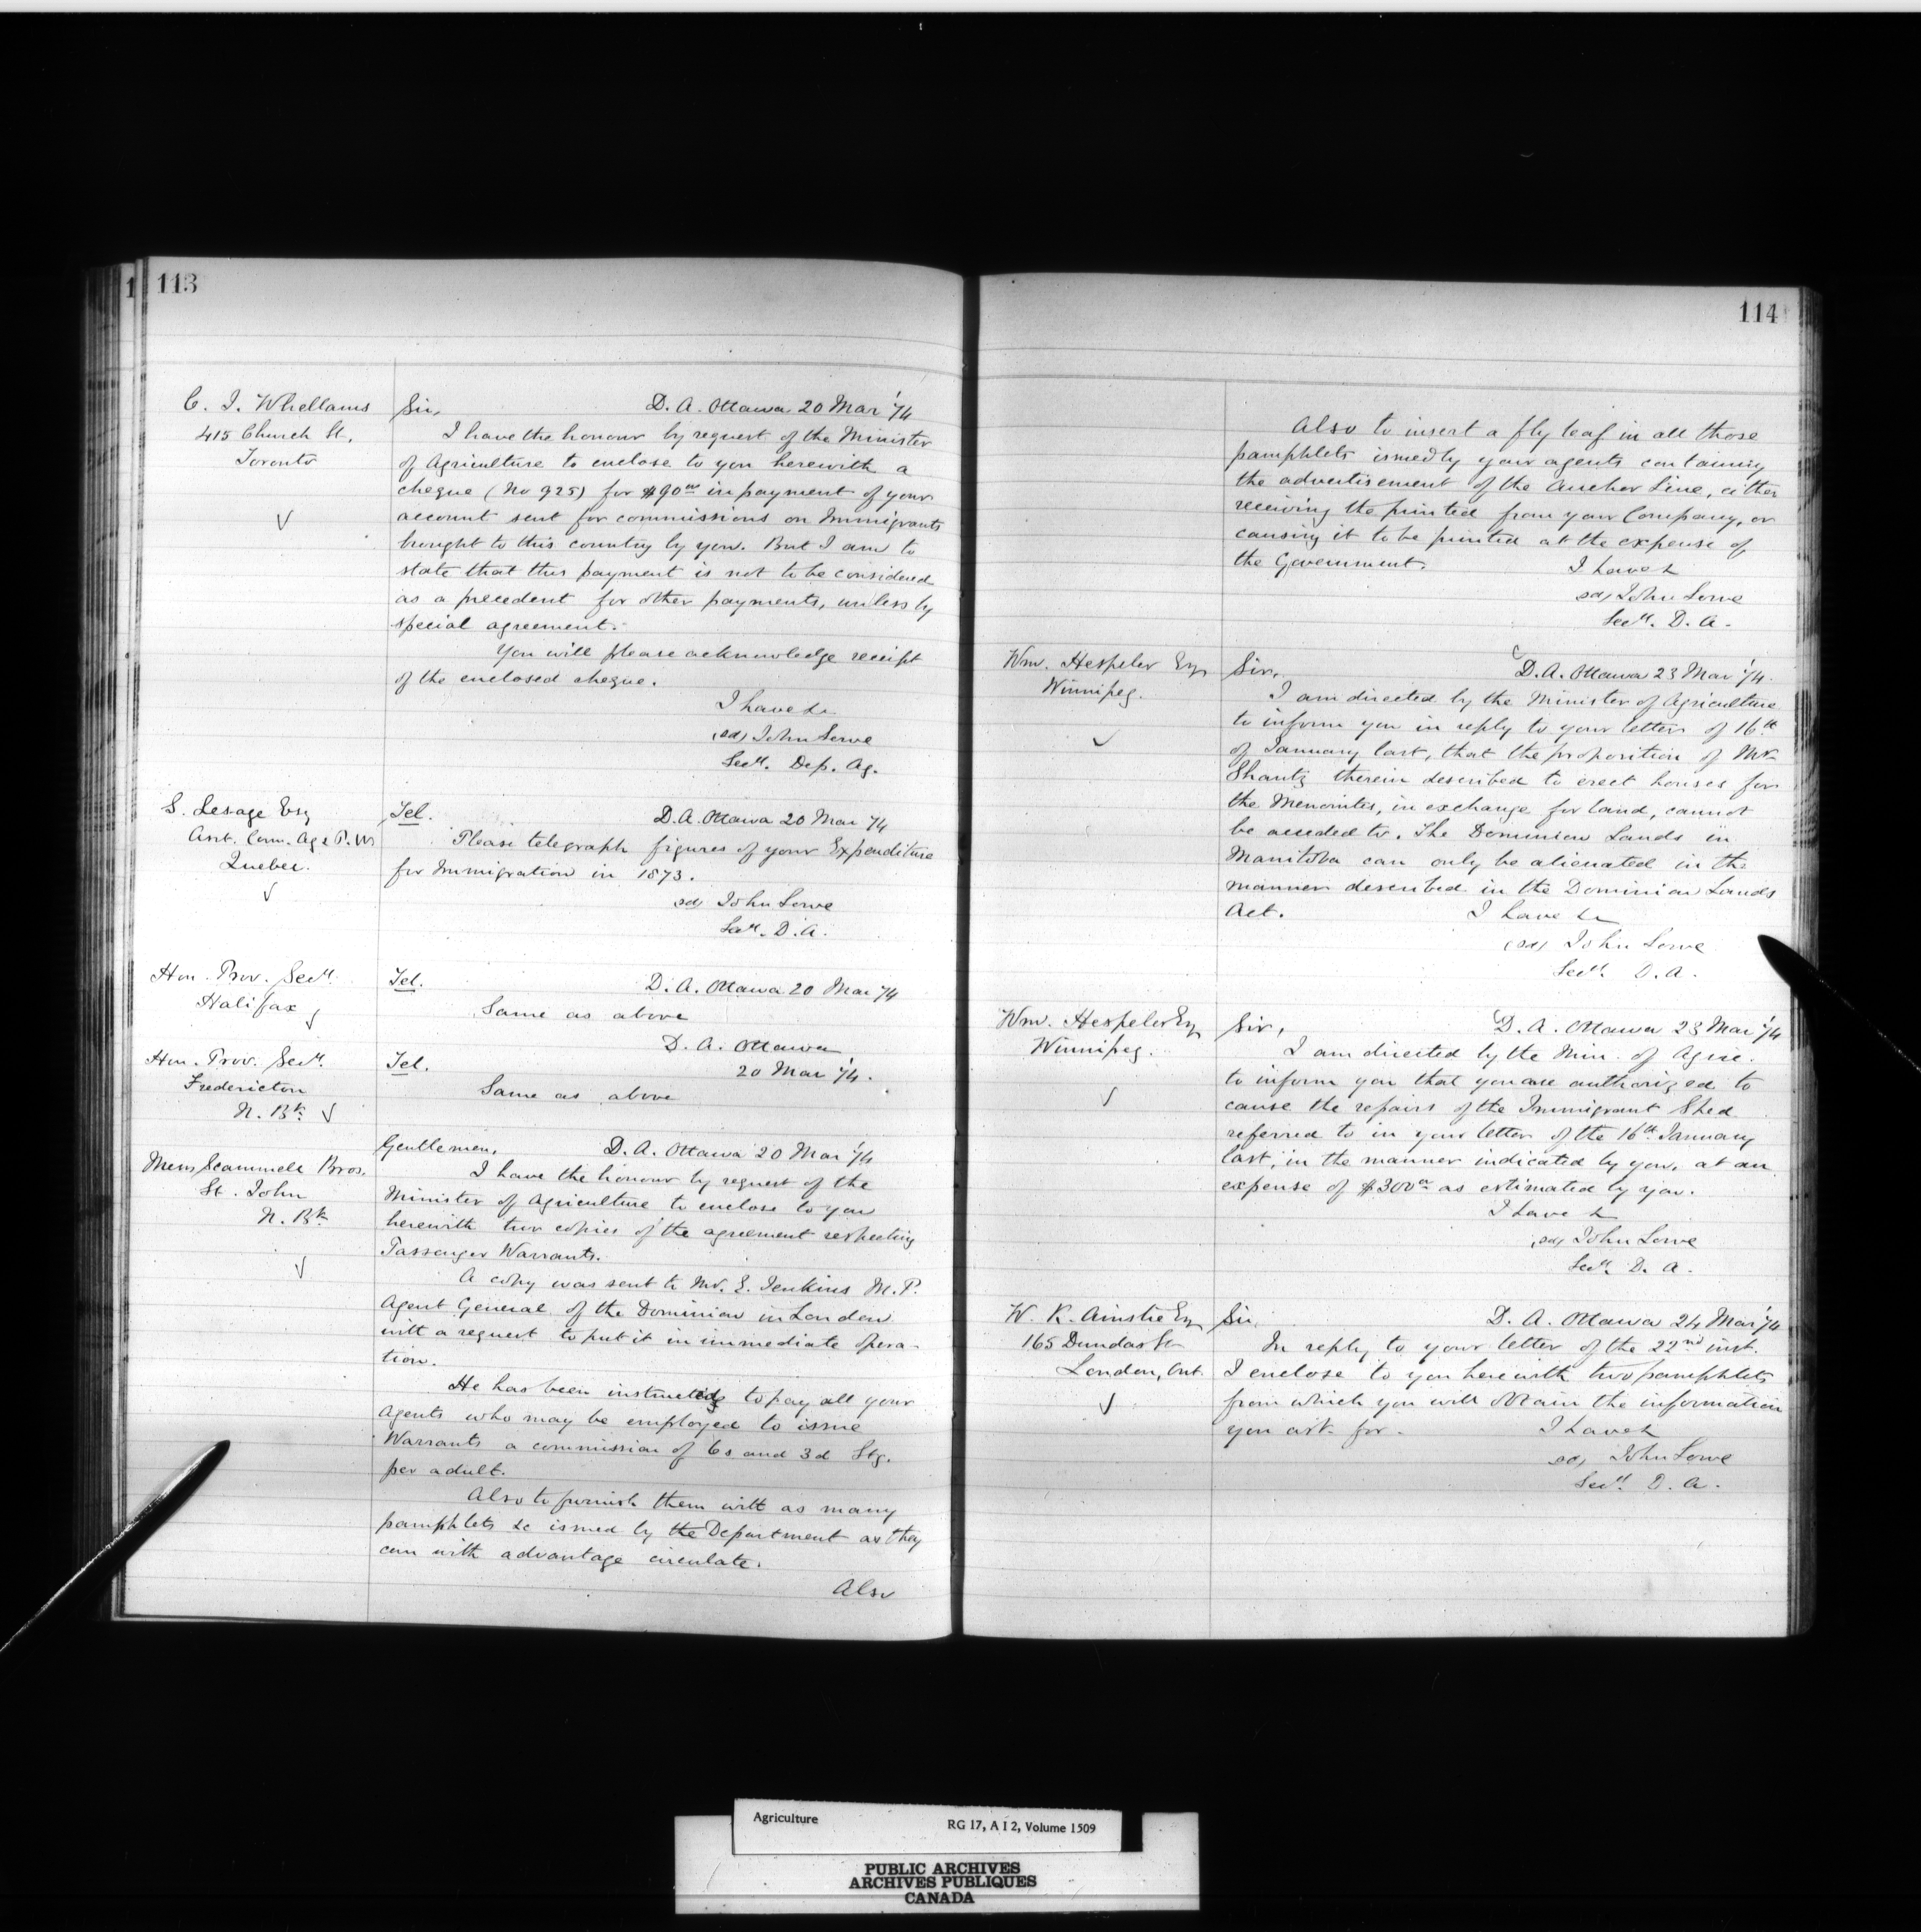 113
C. I. Whellams
415 Church St.
Toronto
Sir, D. A. Ottawa 20 Mar '74
I have the honour by request of the Minister
of Agriculture to enclose to you herewith a
cheque (No 925) for $90 00 in payment of your
account sent for commissions on Immigrants
brought to this country by you. But I am to
state that this payment is not to be considered
as a precedent for other payments, unless by
special agreement.
You will please acknowledge receipt
of the enclosed cheque.
I have &c
(sd) John Lowe
Secy. Dep. Ag.
S. Lesage Esq
Asst. Com. Ag & P. W
Quebec.
Tel. D. A. Ottawa 20 Mar '74
Please telegraph figures of your Expenditure
for Immigration in 1873.
sd) John Lowe
Secy. D. A.
Hon. Prov. Secy.
Halifax
Tel. D. A. Ottawa 20 Mar '74
Same as above
Hon. Prov. Secy.
Fredericton
N. Bk
D. A. Ottawa
Tel. 20 Mar '74.
Same as above
Messrs Scammell Bros.
St. John
N. Bk
Gentlemen, D. A. Ottawa 20 Mar '74
I have the honour by request of the
Minister of Agriculture to enclose to you
herewith two copies of the agreement respecting
Passenger Warrants.
A copy was sent to Mr. E. Jenkins M. P.
Agent General of the Dominion in London
with a request to put it in immediate opera-
tion.
He has been instructed to pay all your
Agents who may be employed to issue
Warrants a commission of 6s and 3d Stg.
per adult.
Also to furnish them with as many
pamphlets &c issued by the Department as they
can with advantage circulate.
Also
114
Also to insert a fly leaf in all those
pamphlets issued by your agents containing
the advertisement of the Anchor Line, either
receiving the printed from your Company, or
causing it to be printed at the expense of
the Government. I have &
sd) John Lowe
Secy. D. A.
Wm. Hespeler Esq
Winnipeg.
Sir, D. A. Ottawa 23 Mar '74.
I am directed by the Minister of Agriculture
to inform you in reply to your letter of 16th
of January last, that the proposition of Mr
Shantz therein described to erect houses for
the Menonites, in exchange for land, cannot
be acceded to. The Dominion Lands in
Manitoba can only be alienated in the
manner described in the Dominion Lands
Act. I have &c
(sd) John Lowe
Secy. D. A.
Wm. Hespeler Esq
Winnipeg.
Sir, D. A. Ottawa 23 Mar '74
I am directed by the Min. of Agric.
to inform you that you are authorized to
cause the repairs of the Immigrant Shed
referred to in your letter of the 16th January
last, in the manner indicated by you, at an
expense of $300 00 as estimated by you.
I have &
sd) John Lowe
Secy. D. A.
W. K. Ainslie Esq
165 Dundas St
London, Ont.
Sir, D. A. Ottawa 24 Mar '74
In reply to your letter of the 22nd inst.
I enclose to you herewith two pamphlets
from which you will obtain the information
you ask for. I have &
sd) John Lowe
Secy. D. A.
Agriculture RG 17, A I 2, Volume 1509
PUBLIC ARCHIVES
ARCHIVES PUBLIQUES
CANADA